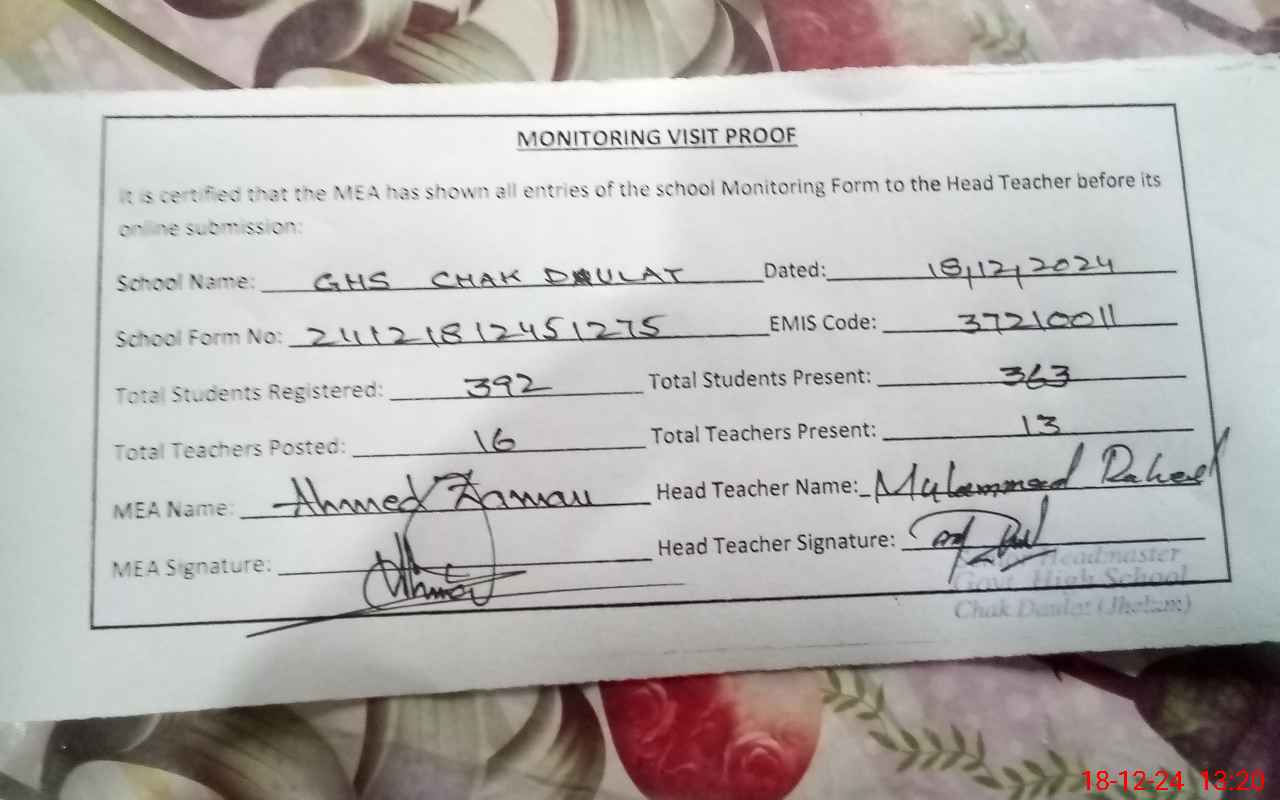 MONITORING VISIT PROOF
It is certified that the MEA has shown all entries of the school Monitoring Form to the Head Teacher before its
online submission:
School Name: GHS CHAK DAULAT Dated: 18,12,2024
School Form No: 24121812451275 EMIS Code: 37210011
Total Students Registered: 392 Total Students Present: 363
Total Teachers Posted: 16 Total Teachers Present: 13
MEA Name: Ahmed Zaman Head Teacher Name: Muhammad Raheel
MEA Signature: Ahmed Head Teacher Signature:
Headmaster
Govt. High School
Chak Daulat (Jhelum)
18-12-24 13:20